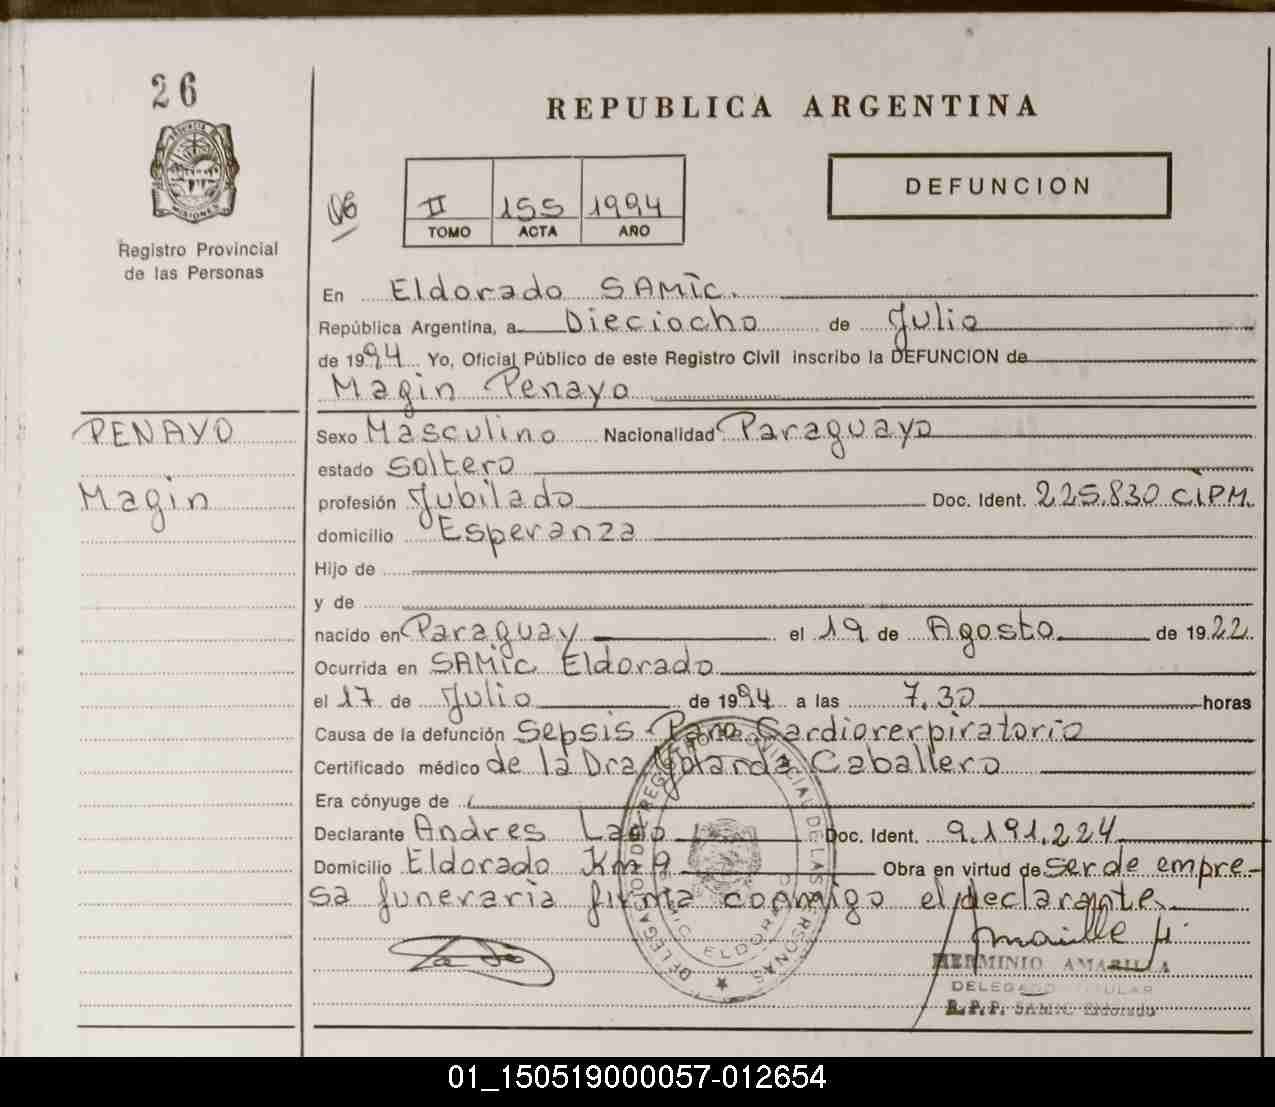 26
REPUBLICA ARGENTINA
DEFUNCION
06
II 155 1994
TOMO ACTA AÑO
MISIONES
Registro Provincial
de las Personas
En Eldorado SAMic.
República Argentina, a Dieciocho de Julio
de 1994 Yo, Oficial Público de este Registro Civil inscribo la DEFUNCION de
Magin Penayo
PENAYO
Magin
Sexo Masculino Nacionalidad Paraguayo
estado Soltero
profesión Jubilado Doc. Ident. 225.830 C.I.P.M.
domicilio Esperanza
Hijo de
y de
nacido en Paraguay el 19 de Agosto de 1922
Ocurrida en SAMic Eldorado
el 17 de Julio de 1994 a las 7.30 horas
Causa de la defunción Sepsis Paro Cardiorerpiratorio
Certificado médico de la Dra Yolanda Caballero
Era cónyuge de
Declarante Andres Lago Doc. Ident. 9.191.224
Domicilio Eldorado Km 9 Obra en virtud de ser de empre-
sa funeraria firma conmigo el declarante.
DELEGACION DE REGISTRO PROVINCIAL DE LAS PERSONAS
SAMIC ELDORADO
HERMINIO AMARILLA
DELEGADO TITULAR
R.P.P. SAMIC Eldorado
01_150519000057-012654